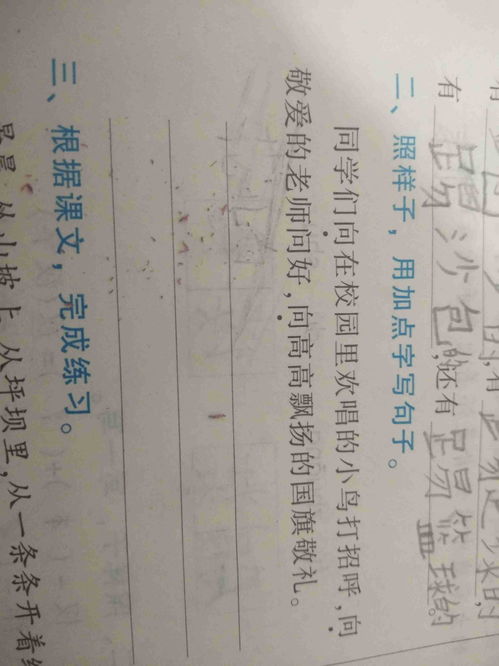 有
有踢沙包的,还有踢篮球的。
二、照样子，用加点字写句子。
同学们向在校园里欢唱的小鸟打招呼,向
敬爱的老师问好,向高高飘扬的国旗敬礼。
三、根据课文，完成练习。
早晨,从山坡上,从坪坝里,从一条条开着